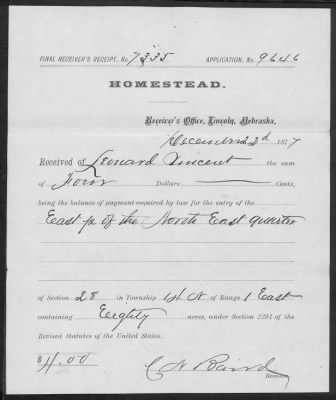 FINAL RECEIVER'S RECEIPT, No. 7335 APPLICATION, No. 9646
HOMESTEAD.
Receiver's Office, Lincoln, Nebraska,
December 22d 1877
Received of Leonard Vincent the sum
of Four Dollars Cents,
being the balance of payment required by law for the entry of the
East ½ of the North East quarter
of Section 28 in Township 14 N of Range 1 East
containing Eighty acres, under Section 2291 of the
Revised Statutes of the United States.
$4.00
Receiver.